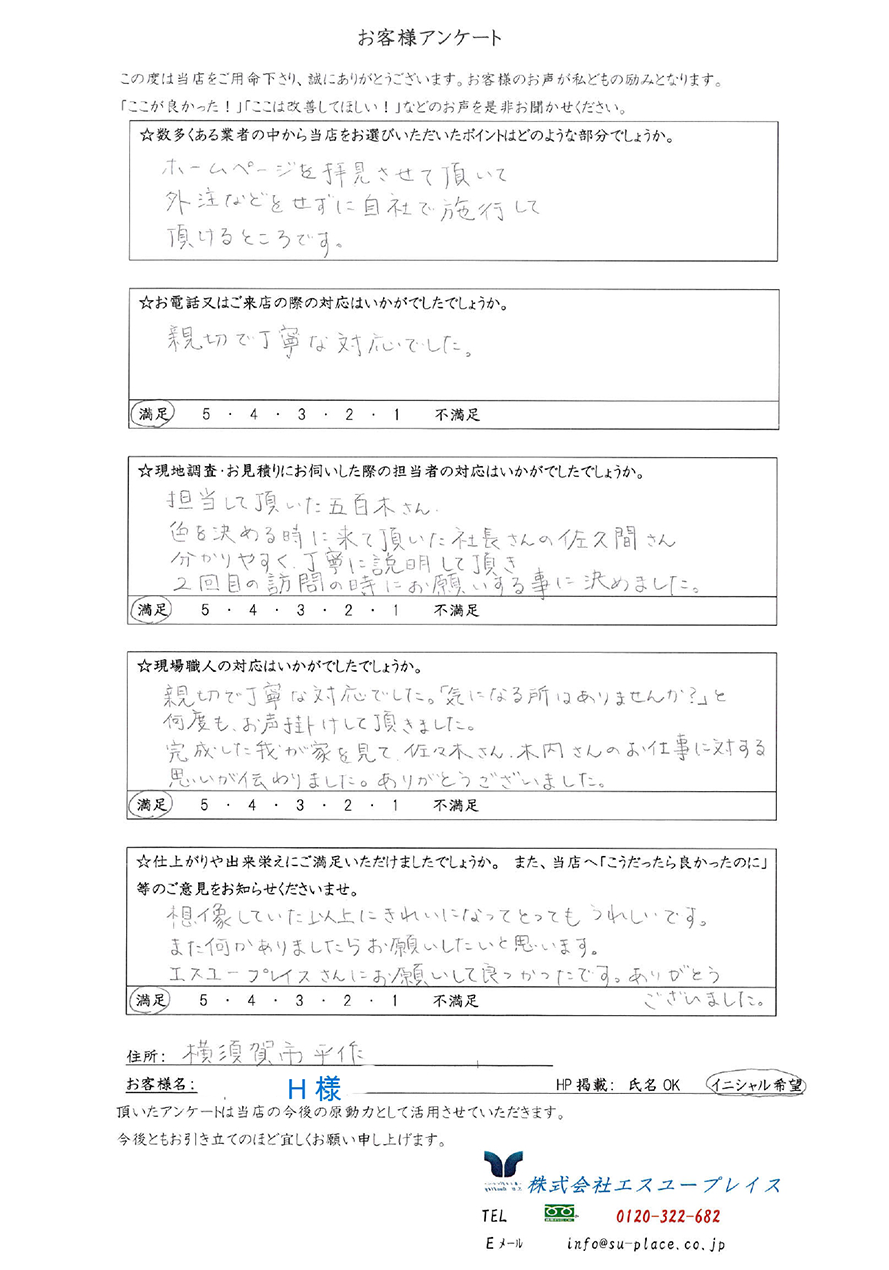 お客様アンケート
この度は当店をご用命下さり、誠にありがとうございます。お客様のお声が私どもの励みとなります。
「ここが良かった!」「ここは改善してほしい!」などのお声を是非お聞かせください。
☆数多くある業者の中から当店をお選びいただいたポイントはどのような部分でしょうか。
ホームページを拝見させて頂いて
外注などをせずに自社で施行して
頂けるところです。
☆お電話又はご来店の際の対応はいかがでしたでしょうか。
親切で丁寧な対応でした。
満足 5 ・ 4 ・ 3 ・ 2 ・ 1 不満足
☆現地調査・お見積りにお伺いした際の担当者の対応はいかがでしたでしょうか。
担当して頂いた五百木さん.
色を決める時に来て頂いた社長さんの佐久間さん
分かりやすく、丁寧に説明して頂き
2回目の訪問の時にお願いする事に決めました。
満足 5 ・ 4 ・ 3 ・ 2 ・ 1 不満足
☆現場職人の対応はいかがでしたでしょうか。
親切で丁寧な対応でした。「気になる所はありませんか?」と
何度も、お声掛けして頂きました。
完成した我が家を見て、佐々木さん、木内さんのお仕事に対する
思いが伝わりました。ありがとうございました。
満足 5 ・ 4 ・ 3 ・ 2 ・ 1 不満足
☆仕上がりや出来栄えにご満足いただけましたでしょうか。 また、当店へ「こうだったら良かったのに」
等のご意見をお知らせくださいませ。
想像していた以上にきれいになってとってもうれしいです。
また何かありましたらお願いしたいと思います。
エスユープレイスさんにお願いして良かったです。ありがとう
ございました。
満足 5 ・ 4 ・ 3 ・ 2 ・ 1 不満足
住所: 横須賀市平作
お客様名: H 様 HP掲載: 氏名OK イニシャル希望
頂いたアンケートは当店の今後の原動力として活用させていただきます。
今後ともお引き立てのほど宜しくお願い申し上げます。
株式会社エスユープレイス
TEL 0120-322-682
Eメール info@su-place.co.jp